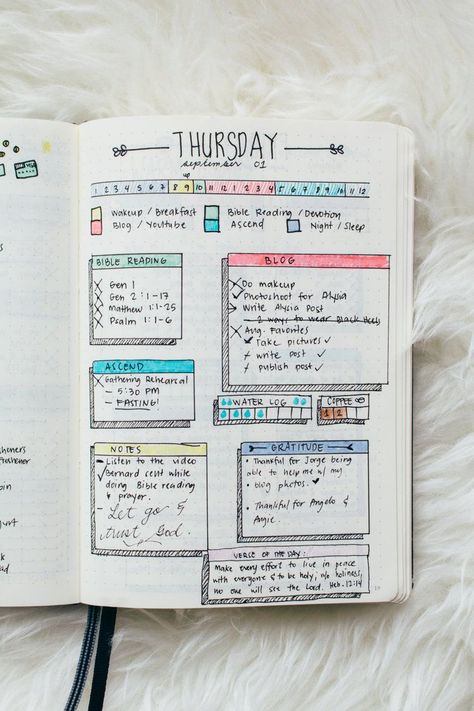 THURSDAY
september 01
up
1 2 3 4 5 6 7 8 9 10 11 12 1 2 3 4 5 6 7 8 9 10 11 12
Wakeup / Breakfast
Bible Reading / Devotion
Blog / Youtube
Ascend
Night / Sleep
BIBLE READING
Gen 1
Gen 2 : 1-17
Matthew 1:1-25
Psalm 1:1-6
BLOG
Do makeup
Photoshoot for Alysia
Write Alysia Post
- 2 ways to wear Black Heels
Aug. Favorites
Take pictures
write post
publish post
ASCEND
Gathering Rehearsal
- 5:30 PM
- FASTING!
WATER LOG
COFFEE
1 2
NOTES
- Listen to the video
Bernard sent while
doing Bible reading
& prayer.
- Let go &
trust God.
GRATITUDE
• Thankful for Jorge being
able to help me w/ my
• blog photos.
• Thankful for Angelo &
Angie.
VERSE OF THE DAY:
Make every effort to live in peace
with everyone & to be holy; w/o holiness,
no one will see the Lord. Heb. 12:14
19